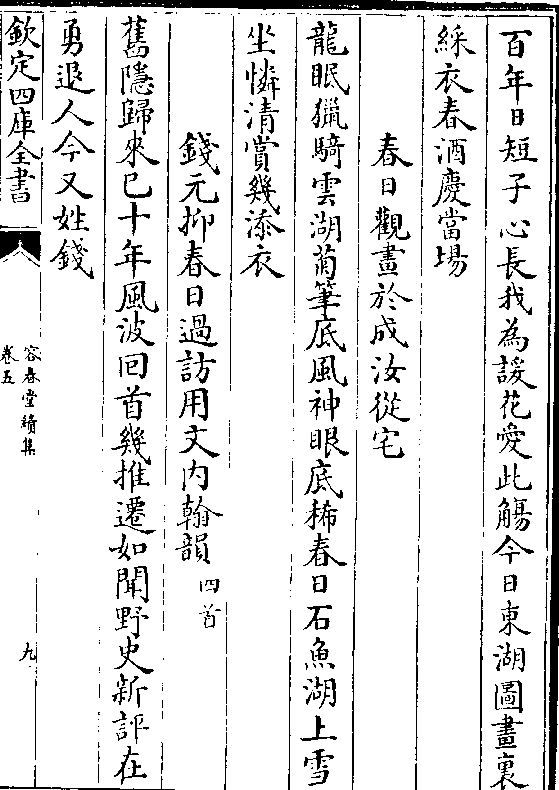 百年日短子心長我為諼花愛此觴今日東湖圖畫裏
綵衣春酒慶當場
春日觀畫於成汝從宅
龍眠獵騎雲湖菊筆底風神眼底稀春日石魚湖上雪
坐憐清賞幾添衣
錢元抑春日過訪用文内翰韻四首
舊隱歸來已十年風波回首幾推遷如聞野史新評在
勇退人今又姓錢
欽定四庫全書
容春堂續集
卷五
九